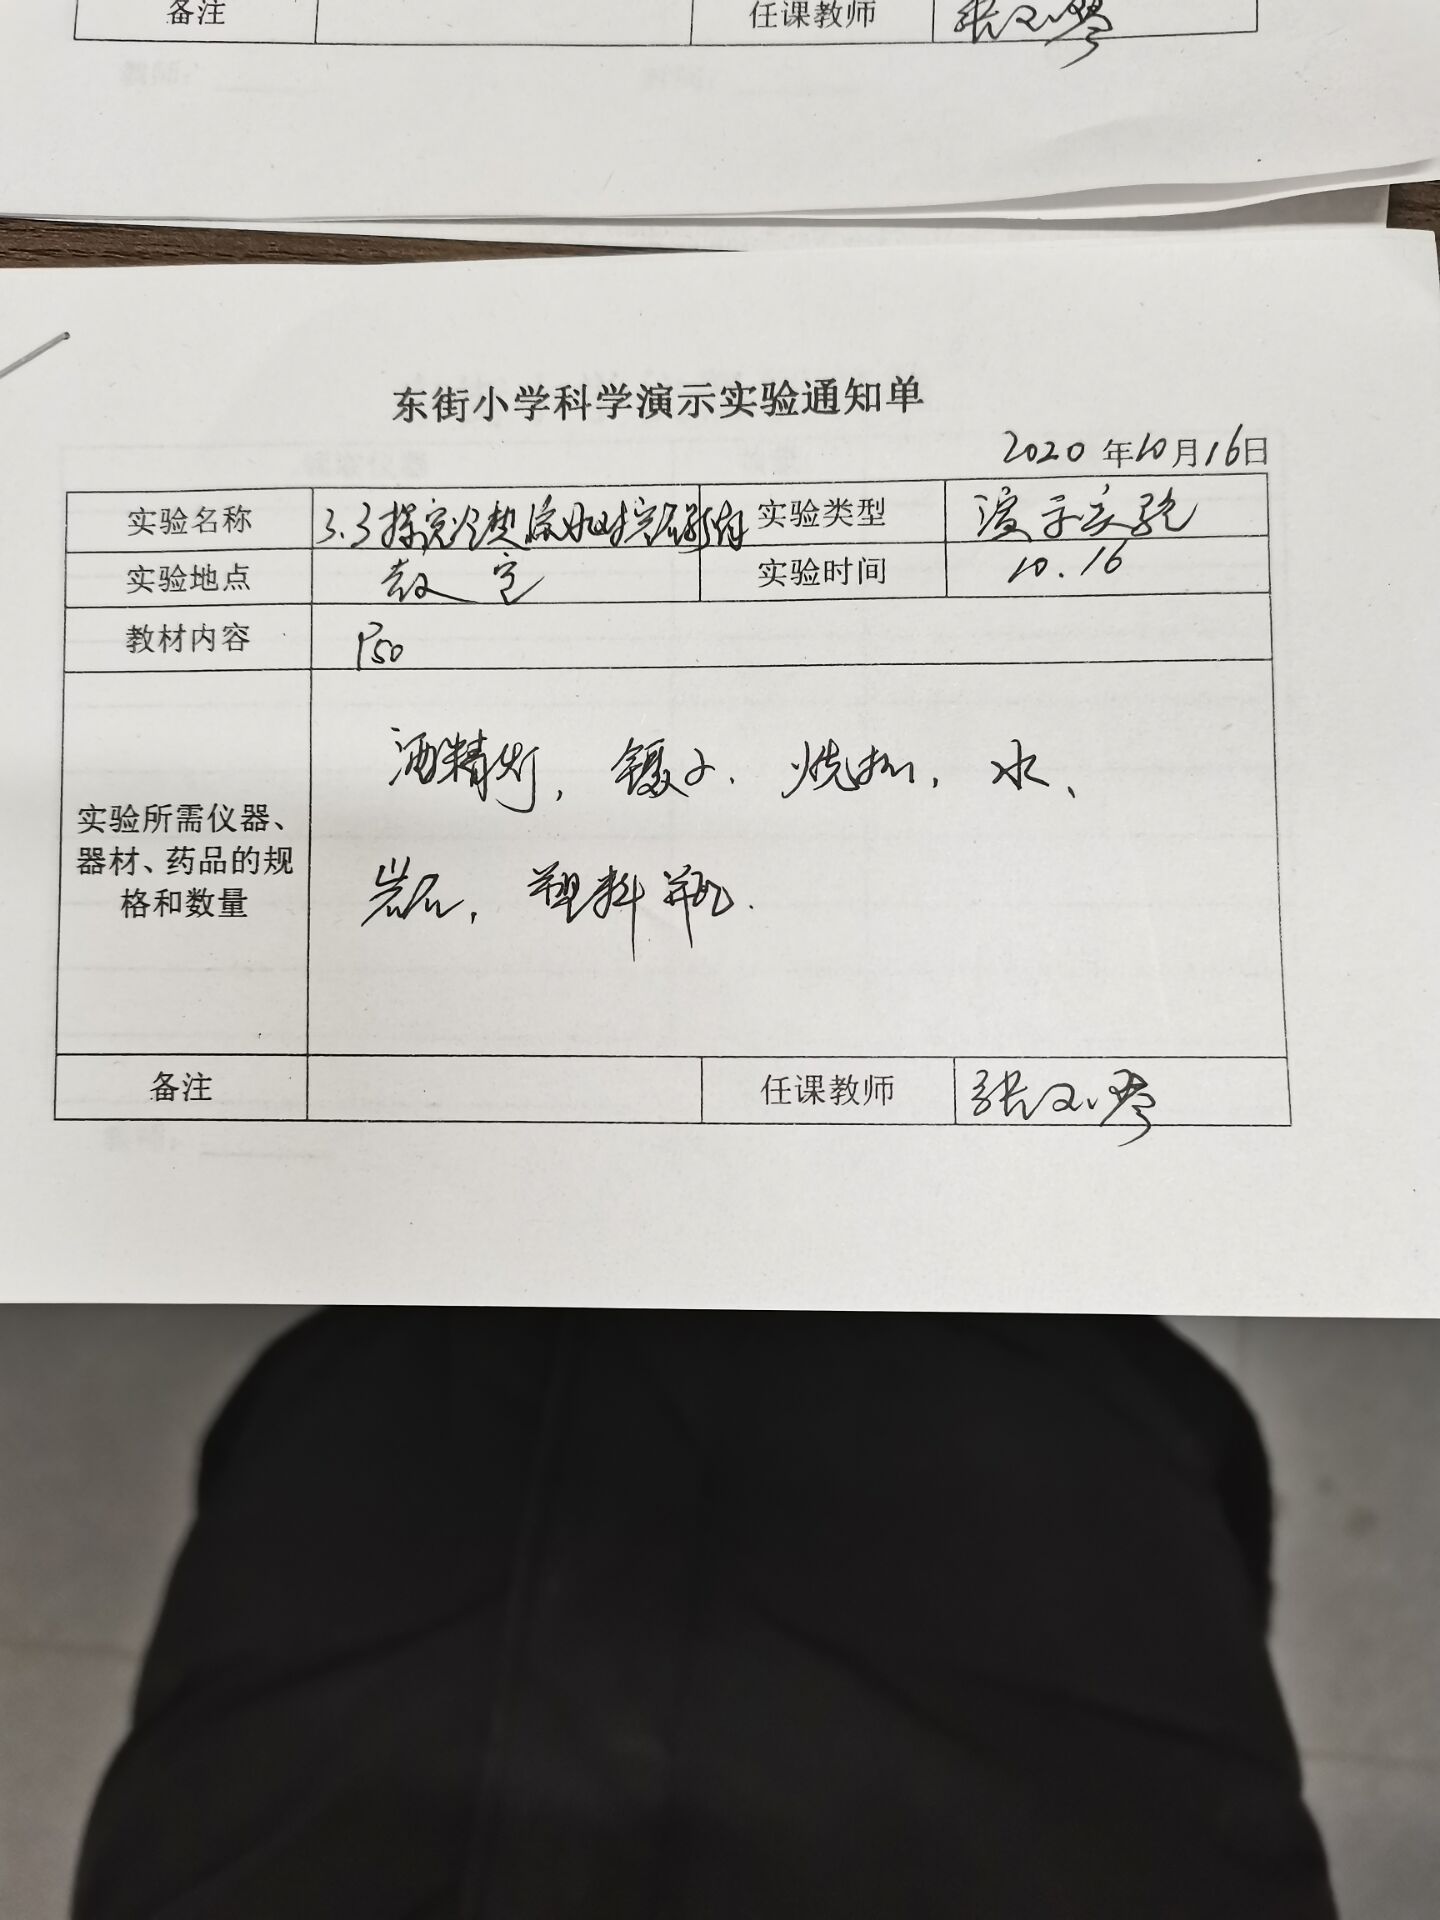 备注 任课教师
东街小学科学演示实验通知单
2020年10月16日
实验名称 3.3探究冷热 流水对岩石影响 实验类型 演示实验
实验地点 教室 实验时间 10.16
教材内容 P50
酒精灯, 镊子. 烧杯, 水、
实验所需仪器、
器材、药品的规
格和数量
岩石, 塑料瓶.
备注 任课教师 张